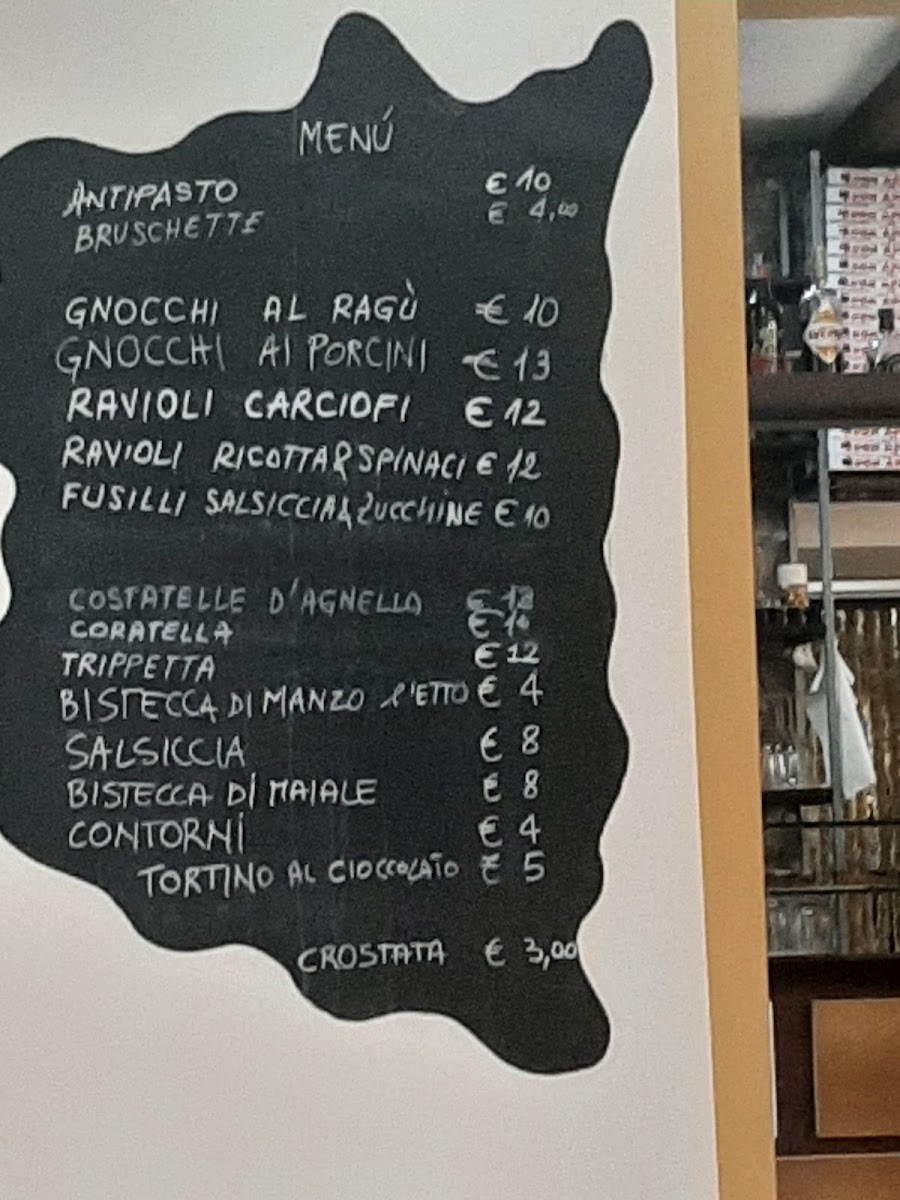 MENÚ
ANTIPASTO € 10
BRUSCHETTE € 4,00
GNOCCHI AL RAGÙ € 10
GNOCCHI AI PORCINI € 13
RAVIOLI CARCIOFI € 12
RAVIOLI RICOTTA&SPINACI € 12
FUSILLI SALSICCIA&ZUCCHINE € 10
COSTATELLE D'AGNELLO €
CORATELLA €
TRIPPETTA € 12
BISTECCA DI MANZO l'ETTO € 4
SALSICCIA € 8
BISTECCA DI MAIALE € 8
CONTORNI € 4
TORTINO AL CIOCCOLATO € 5
CROSTATA € 3,00